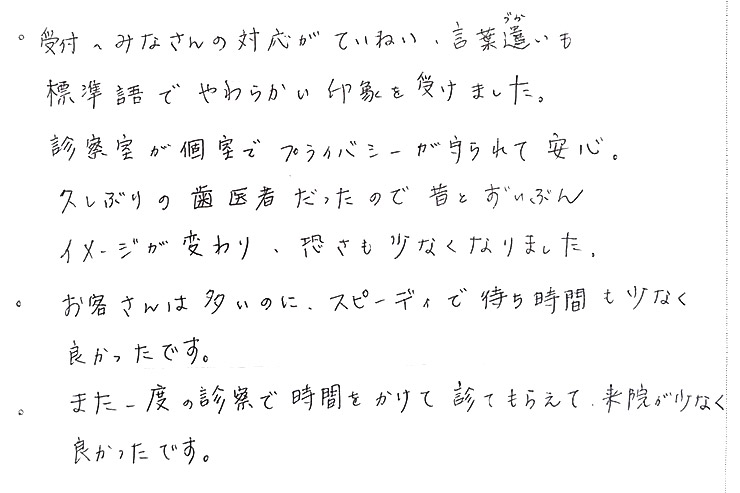 。受付のみなさんの対応がていねい、言葉遣(づか)いも
標準語でやわらかい印象を受けました。
診察室が個室でプライバシーが守られて安心。
久しぶりの歯医者だったので昔とずいぶん
イメージが変わり、恐さも少なくなりました。
。お客さんは多いのに、スピーディで待ち時間も少なく
良かったです。
。また一度の診察で時間をかけて診てもらえて、来院が少なく
良かったです。